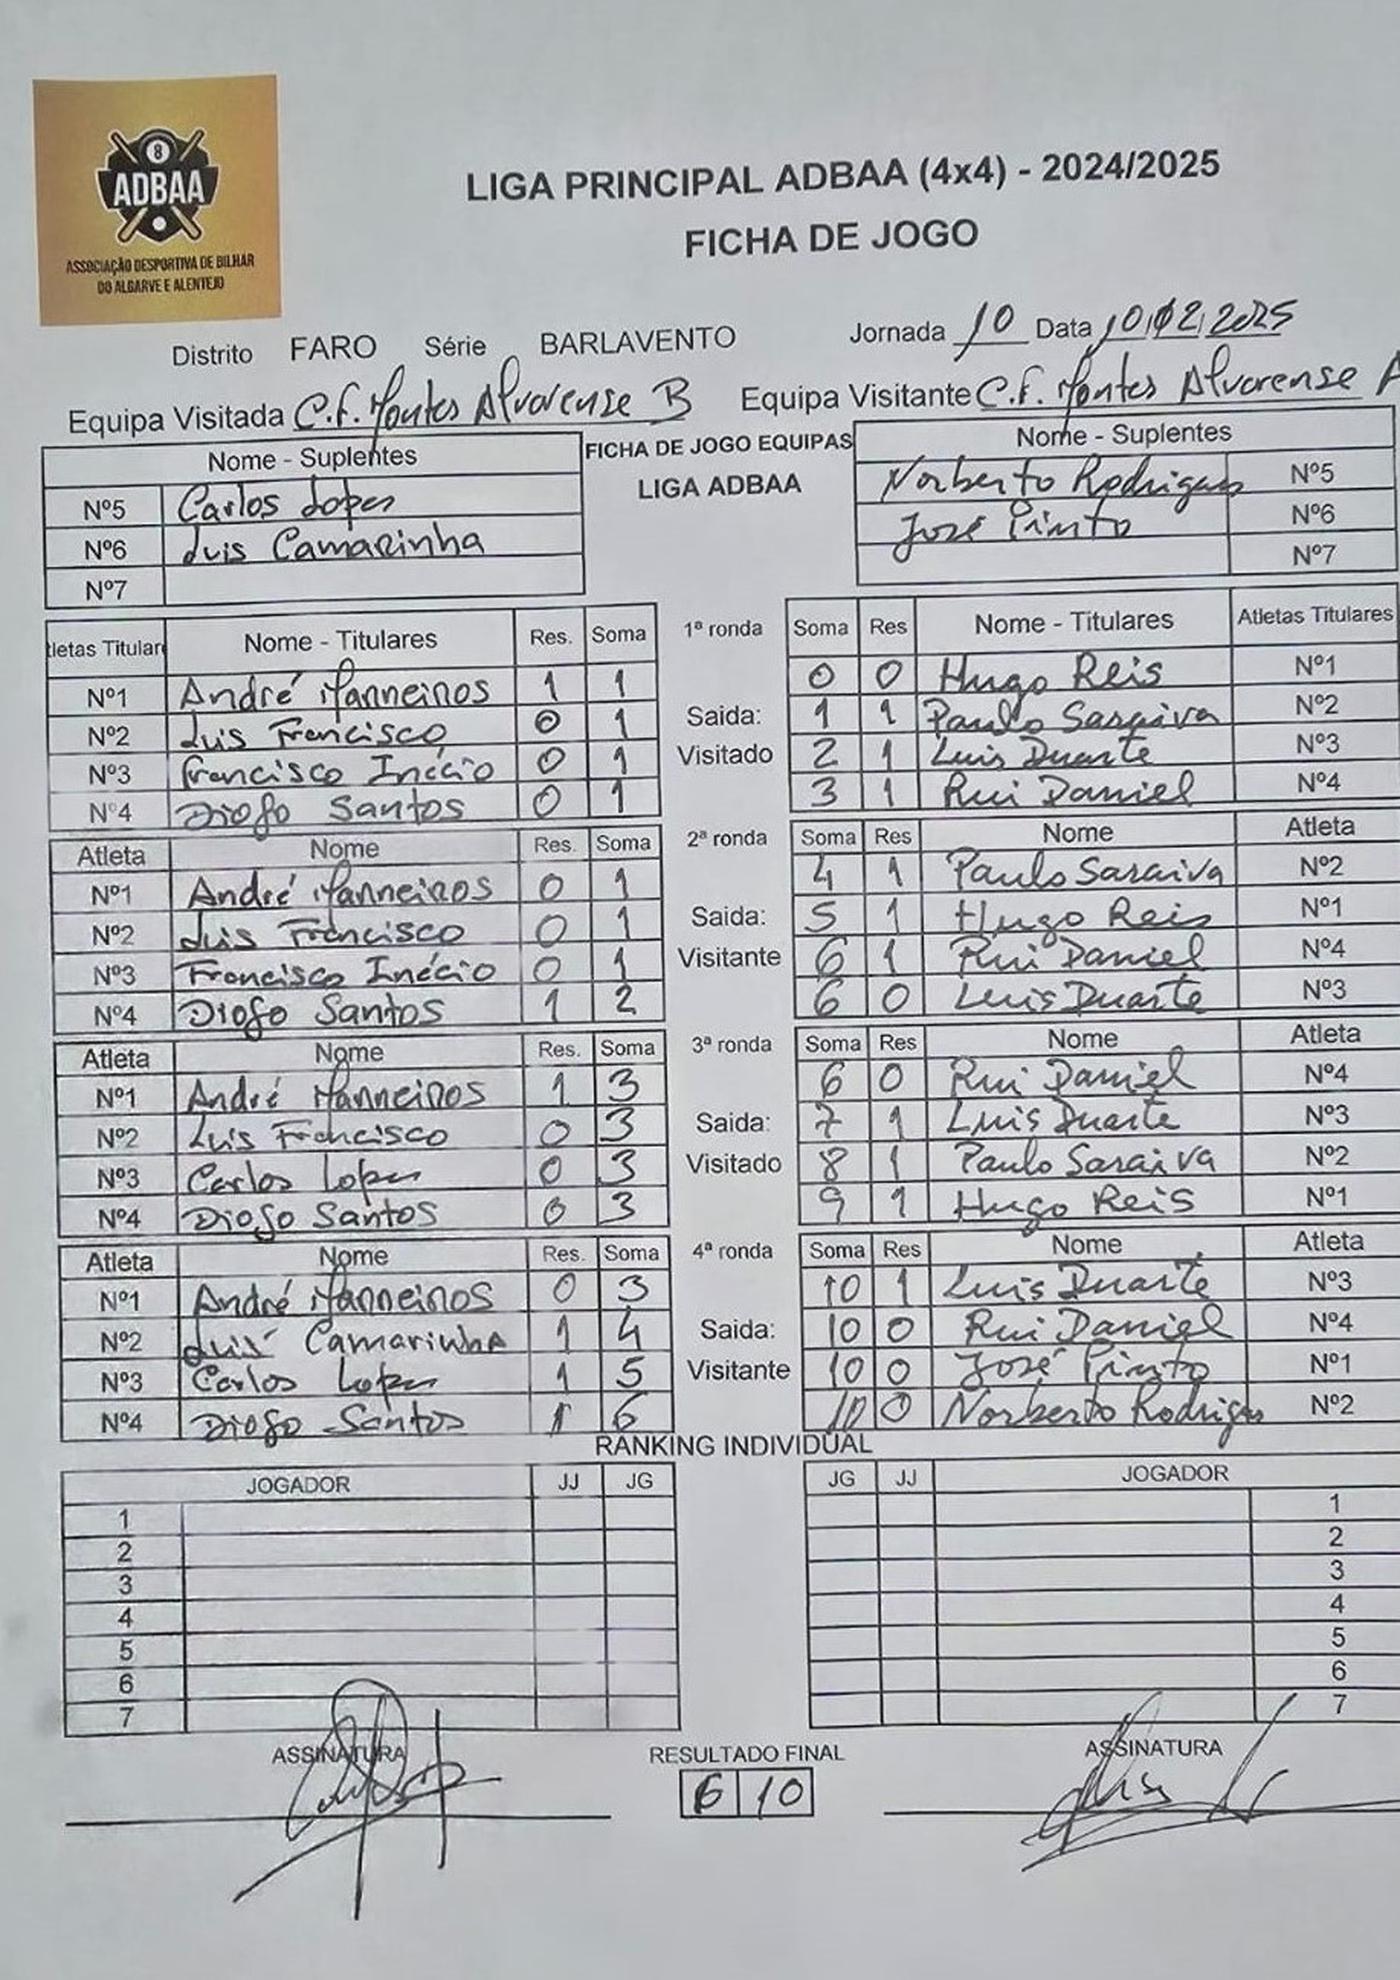 8
ADBAA
ASSOCIAÇÃO DESPORTIVA DE BILHAR
DO ALGARVE E ALENTEJO
LIGA PRINCIPAL ADBAA (4x4) - 2024/2025
FICHA DE JOGO
Distrito FARO Série BARLAVENTO Jornada 10 Data 10/02/2025
Equipa Visitada C.F. Montes Alvorense B Equipa Visitante C.F. Montes Alvorense A
Nome - Suplentes FICHA DE JOGO EQUIPAS Nome - Suplentes
LIGA ADBAA
Nº5 Carlos Lopes Norberto Rodrigues Nº5
Nº6 Luis Camarinha José Pinto Nº6
Nº7 Nº7
tletas Titulares Nome - Titulares Res. Soma 1ª ronda Soma Res Nome - Titulares Atletas Titulares
Nº1 André Manneiros 1 1 0 0 Hugo Reis Nº1
Nº2 Luis Francisco 0 1 Saida: 1 1 Paulo Saraiva Nº2
Nº3 Francisco Inécio 0 1 Visitado 2 1 Luis Duarte Nº3
Nº4 Diogo Santos 0 1 3 1 Rui Daniel Nº4
Atleta Nome Res. Soma 2ª ronda Soma Res Nome Atleta
Nº1 André Manneiros 0 1 4 1 Paulo Saraiva Nº2
Nº2 Luis Francisco 0 1 Saida: 5 1 Hugo Reis Nº1
Nº3 Francisco Inécio 0 1 Visitante 6 1 Rui Daniel Nº4
Nº4 Diogo Santos 1 2 6 0 Luis Duarte Nº3
Atleta Nome Res. Soma 3ª ronda Soma Res Nome Atleta
Nº1 André Manneiros 1 3 6 0 Rui Daniel Nº4
Nº2 Luis Francisco 0 3 Saida: 7 1 Luis Duarte Nº3
Nº3 Carlos Lopes 0 3 Visitado 8 1 Paulo Saraiva Nº2
Nº4 Diogo Santos 0 3 9 1 Hugo Reis Nº1
Atleta Nome Res. Soma 4ª ronda Soma Res Nome Atleta
Nº1 André Manneiros 0 3 10 1 Luis Duarte Nº3
Nº2 Luis Camarinha 1 4 Saida: 10 0 Rui Daniel Nº4
Nº3 Carlos Lopes 1 5 Visitante 10 0 José Pinto Nº1
Nº4 Diogo Santos 1 6 10 0 Norberto Rodrigues Nº2
RANKING INDIVIDUAL
JOGADOR JJ JG JG JJ JOGADOR
1 1
2 2
3 3
4 4
5 5
6 6
7 7
ASSINATURA RESULTADO FINAL ASSINATURA
6 10